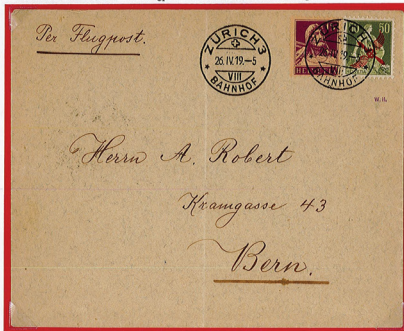 Per Flugpost.
ZÜRICH 3
26. IV. 19.–5
VIII
BAHNHOF
HELVETIA
50
ZÜRICH 3
BAHNHOF
Herrn A. Robert
Kramgasse 43
Bern.